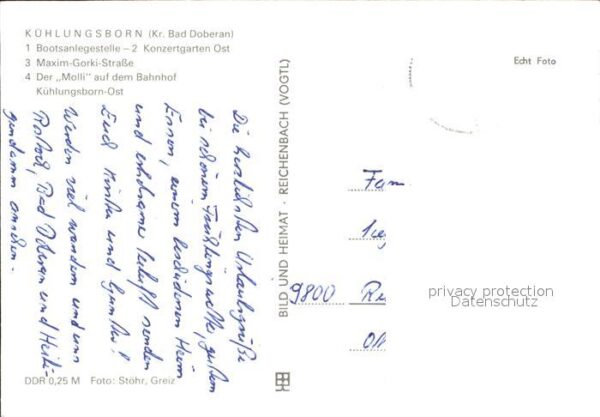 KÜHLUNGSBORN (Kr. Bad Doberan)
1 Bootsanlegestelle – 2 Konzertgarten Ost
3 Maxim-Gorki-Straße
4 Der „Molli" auf dem Bahnhof
Kühlungsborn-Ost
Die herzlichsten Urlaubsgrüße
bei schönem Frühlingswetter, gutem
Essen, einem bescheidenen Heim
und erholsamer Seeluft senden
Euch und Günther!
Werden viel wandern und uns
Rostock, Bad Doberan und Heili-
gendamm ansehen.
DDR 0,25 M Foto: Stöhr, Greiz
BILD UND HEIMAT · REICHENBACH (VOGTL)
Echt Foto
Fam
9800
privacy protection
Datenschutz